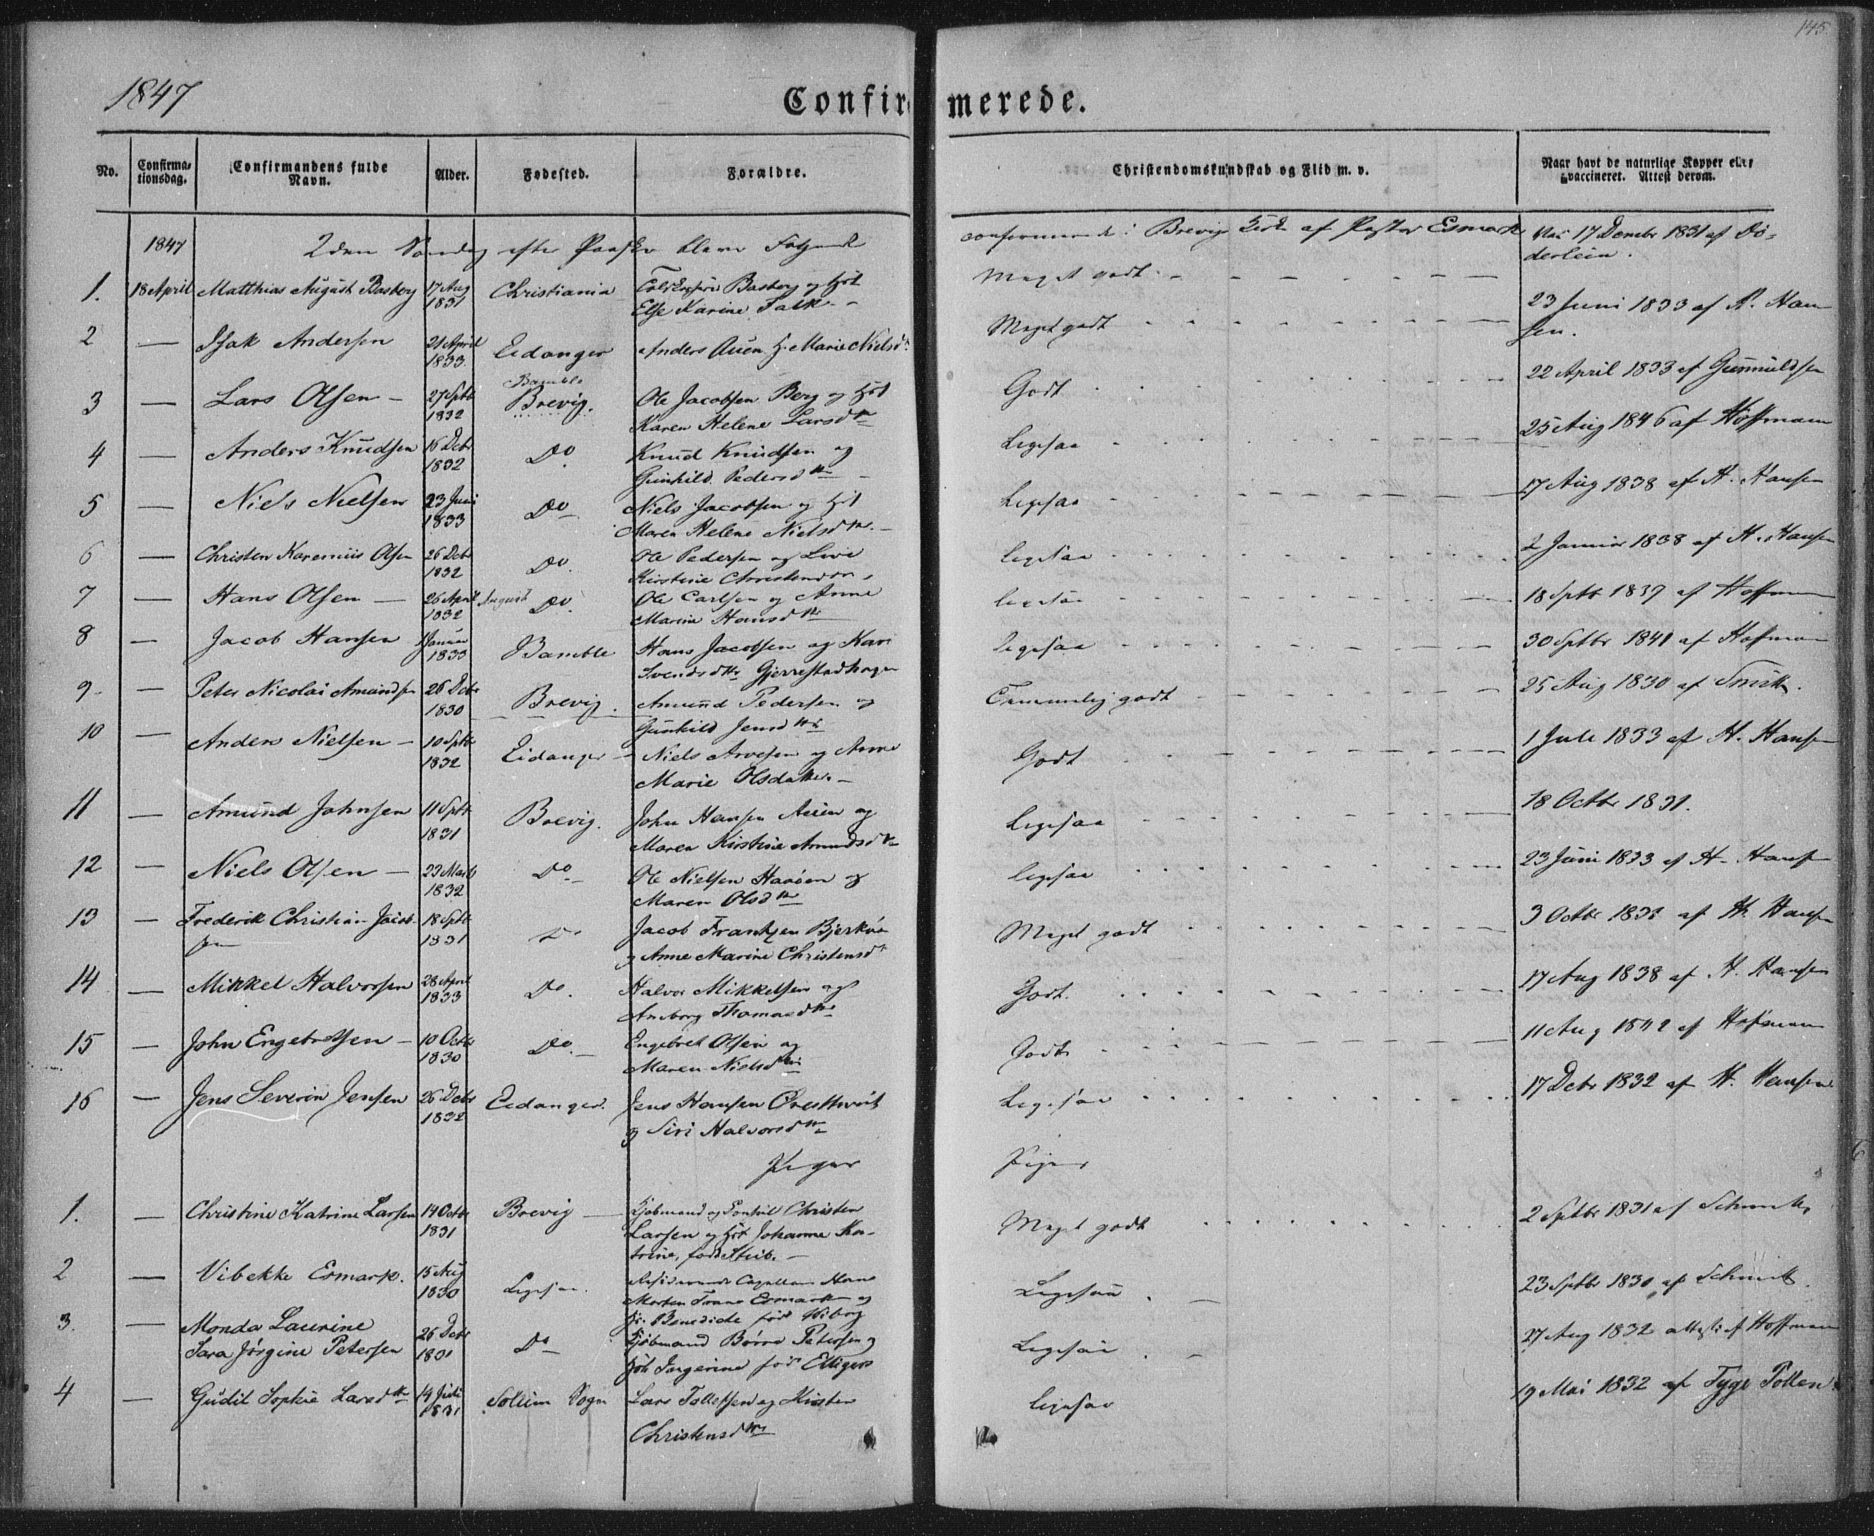 145
1847
Confirmerede.
No. Confirmationsdag. Confirmandens fulde Navn. Alder. Fødested. Forældre. Christendomskundskab og Flid m. v. Naar havt de naturlige Kopper eller vaccineret. Attest derom.
1847 2den Søndag efter Paaske bleve Følgende confirmerede i Brevigs Kirke af Pastor Esmark
1. 18 April Matthias August Basberg 17 Aug 1831 Christiania Basberg og Hst Else Karine Falk Meget godt 17 Decembr 1831 af Døderlein.
2 — Isak Andersen 21 April 1833 Eidanger Anders Auen H. Marie Nielsd. Meget godt 23 Juni 1833 af A. Hansen.
3 — Lars Olsen — 27 Sptb 1832 Bamble Brevig. Ole Jacobsen Berg og Hst Karen Helene Larsdtr Godt 22 April 1833 af Gunnuldsen
4 — Anders Knudsen 16 Decbr 1832 Do Knud Knudsen og Gunhild Pedersdtr Ligesaa 25 Aug 1846 af Hoffmann
5 — Niels Nielsen 23 Juni 1833 Do Niels Jacobsen og Hst Maren Helene Nielsdtr. Ligesaa 17 Aug 1838 af H. Hansen
6 — Christen Karenius Olsen 26 Decb 1832 Do. Ole Pedersen og Live Kirstine Christensdtr. Ligesaa 2 Januar 1838 af H. Hansen
7 — Hans Olsen — 26 April August 1832 Do. Ole Carlsen og Anne Maria Hansdtr Ligesaa 18 Sptb 1839 af Hoffmann
8 — Jacob Hansen Januar 1833 Bamble Hans Jacobsen og Kari Svendsdtr Gjerrestadhagen Ligesaa 30 Sptbr 1841 af Hofman
9. — Peter Nicolai Amundsen 26 Decbr 1830 Brevig. Amund Pedersen og Gunhild Jensdtr Temmelig godt 25 Aug 1830 af Smith.
10 — Anders Nielsen — 10 Sptb 1832 Eidanger Niels Arvesen og Anne Marie Olsdatter. Godt 1 Juli 1833 af H. Hansen
11 — Amund Johnsen 11 Sptb 1831 Brevig. John Hansen Auen og Maren Kirstine Amundsdtr Ligesaa 18 Octbr 1831.
12 — Niels Olsen — 23 Marts 1832 Do Ole Nielsen Haaøen og Maren Olsdtr Ligesaa 23 Juni 1833 af H. Hansen
13 — Frederik Christian Jacobsen 18 Sptb 1831 Do Jacob Frantzen Bjerkøe og Anne Marine Christensdtr Meget godt 3 Octbr af H. Hansen
14 — Mikkel Halvorsen 28 April 1833 Do. Halvor Mikkelsen og Anborg Thomasdtr Godt. 17 Aug 1838 af H. Hansen
15 — John Engebretsen — 10 Octb 1830 Do. Engebret Olsen og Maren Nielsdtr Godt 11 Aug 1842 af Hofman
16 — Jens Severin Jensen 26 Decbr 1832 Eidanger. Jens Hansen Øvesthvedt og Siri Halvorsdtr Ligesaa 17 Decbr 1832 af H. Hansen
Piger Piger
1. — Christine Katrine Larsen 14 Octbr 1831 Brevig — Kjøbmand og Consul Christen Larsen og Hst Johanne Katrine, født Stub. Meget godt 2 Sptbr 1831 af Schmidt
2 — Vibekke Esmark. 15 Aug 1830 Ligesaa. Residerende Capellan Hans Morten Trane Esmark og H. Benedicte født Wiborg Ligesaa 23 Sptbr 1830 af Schmidt.
3. — Monda Laurine Sara Jørgine Petersen 26 Decbr 1831 Do Kjøbmand Børre Petersen og Hst Ingerine født Ettigers Ligesaa 27 Aug 1832 attest af Hoffmann
4 — Gudil Sophie Larsdtr 14 Juli 1831 Sollum Sogn Lars Tollefsen og Kirsten Christensdtr Ligesaa 19 Mai 1832 af Tyge Tollen